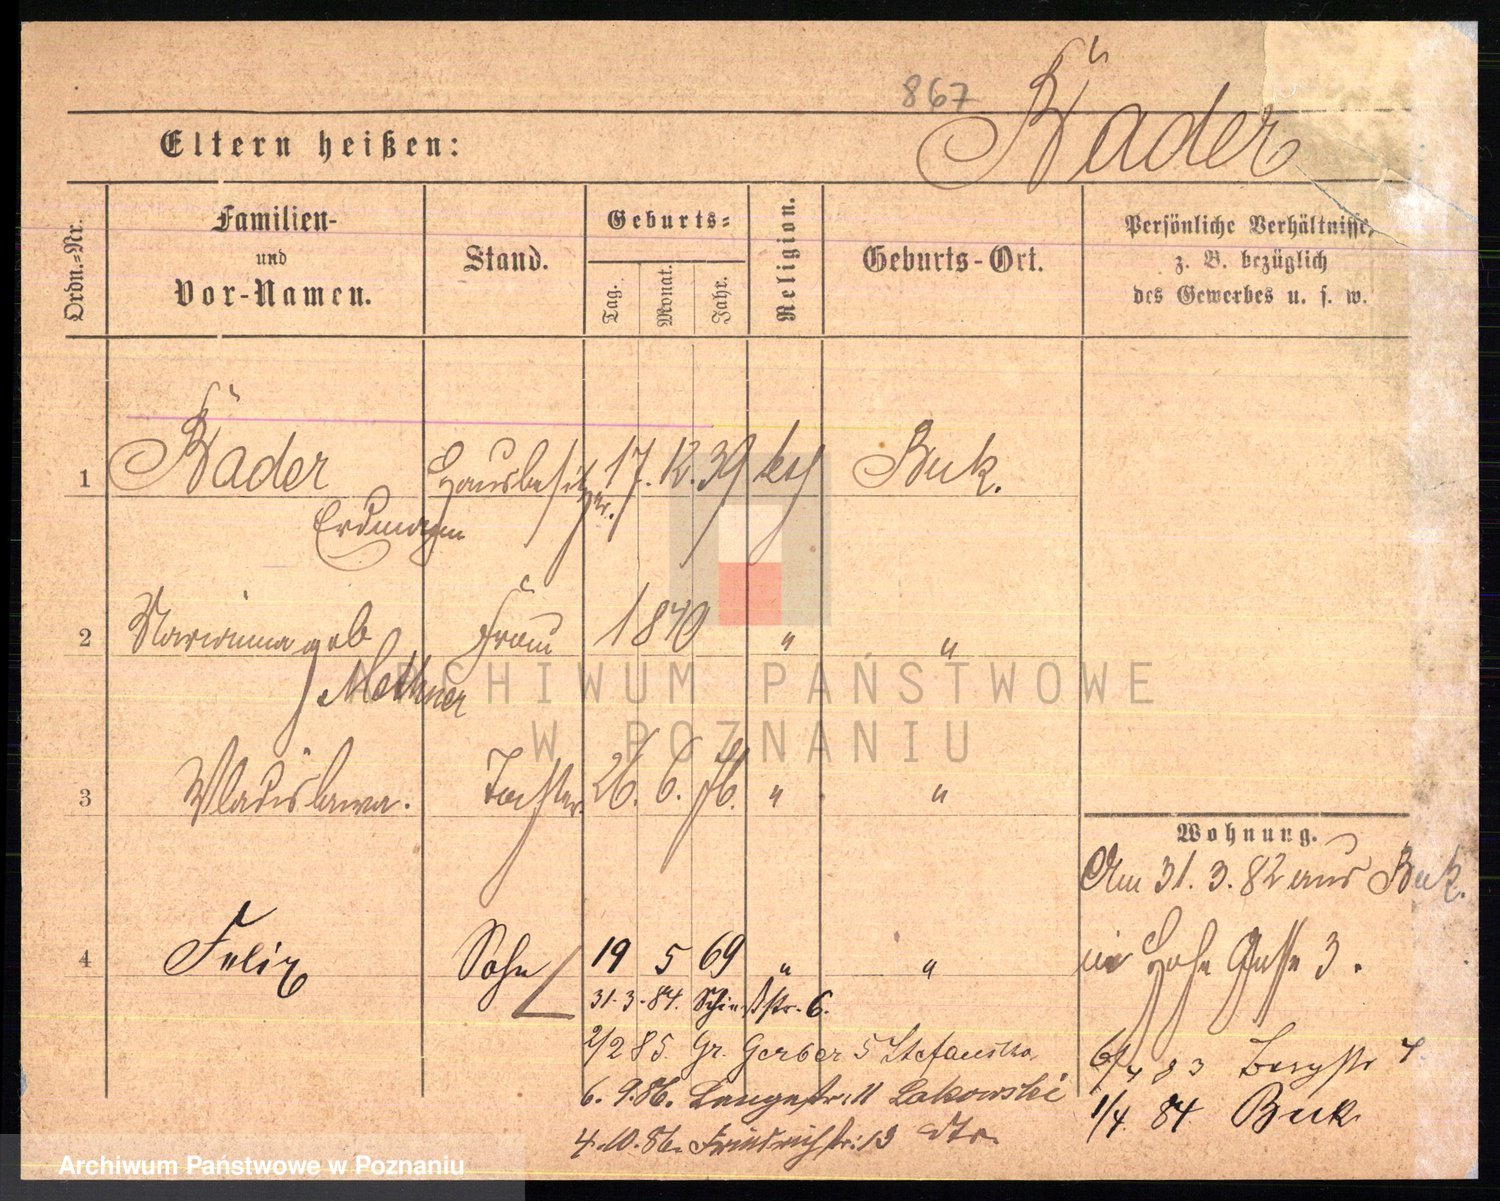 867 Bäder
Eltern heißen:
Ordn.-Nr.
Familien-
und
Vor-Namen.
Stand.
Geburts-
Tag.
Monat.
Jahr.
Religion.
Geburts-Ort.
Persönliche Verhältnisse,
z. B. bezüglich
des Gewerbes u. s. w.
1 Bäder Hausbesitzer. 17. 12. 39 kth Buk.
Erdmann
2 Marianna geb Frau 1840 " "
Methner
3 Wladislawa. Tochter 26. 6. 76. " "
Wohnung.
Am 31. 3. 82 aus Buk.
4 Felix Sohn 19 5 69 " "
in Hohe Gasse 3.
31. 3. 84. Schießstr. 6.
2/2 85. Gr. Gerber 5 Stefanska
6/4 83 Bergstr 4.
6. 9. 86. Langestr. 11 Lakowski
1/4. 84 Buk
4. 10. 86. Friedrichstr. 13 dto.
ARCHIWUM PAŃSTWOWE
W POZNANIU
Archiwum Państwowe w Poznaniu